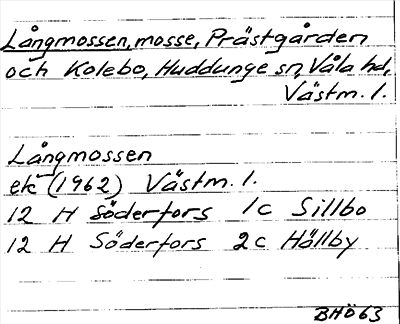 Långmossen, mosse, Prästgården
och Kolebo, Huddunge sn, Våla hd,
Västm. l.
Långmossen
ek (1962) Västm. l.
12 H Söderfors 1c Sillbo
12 H Söderfors 2c Hällby
BHÖ63